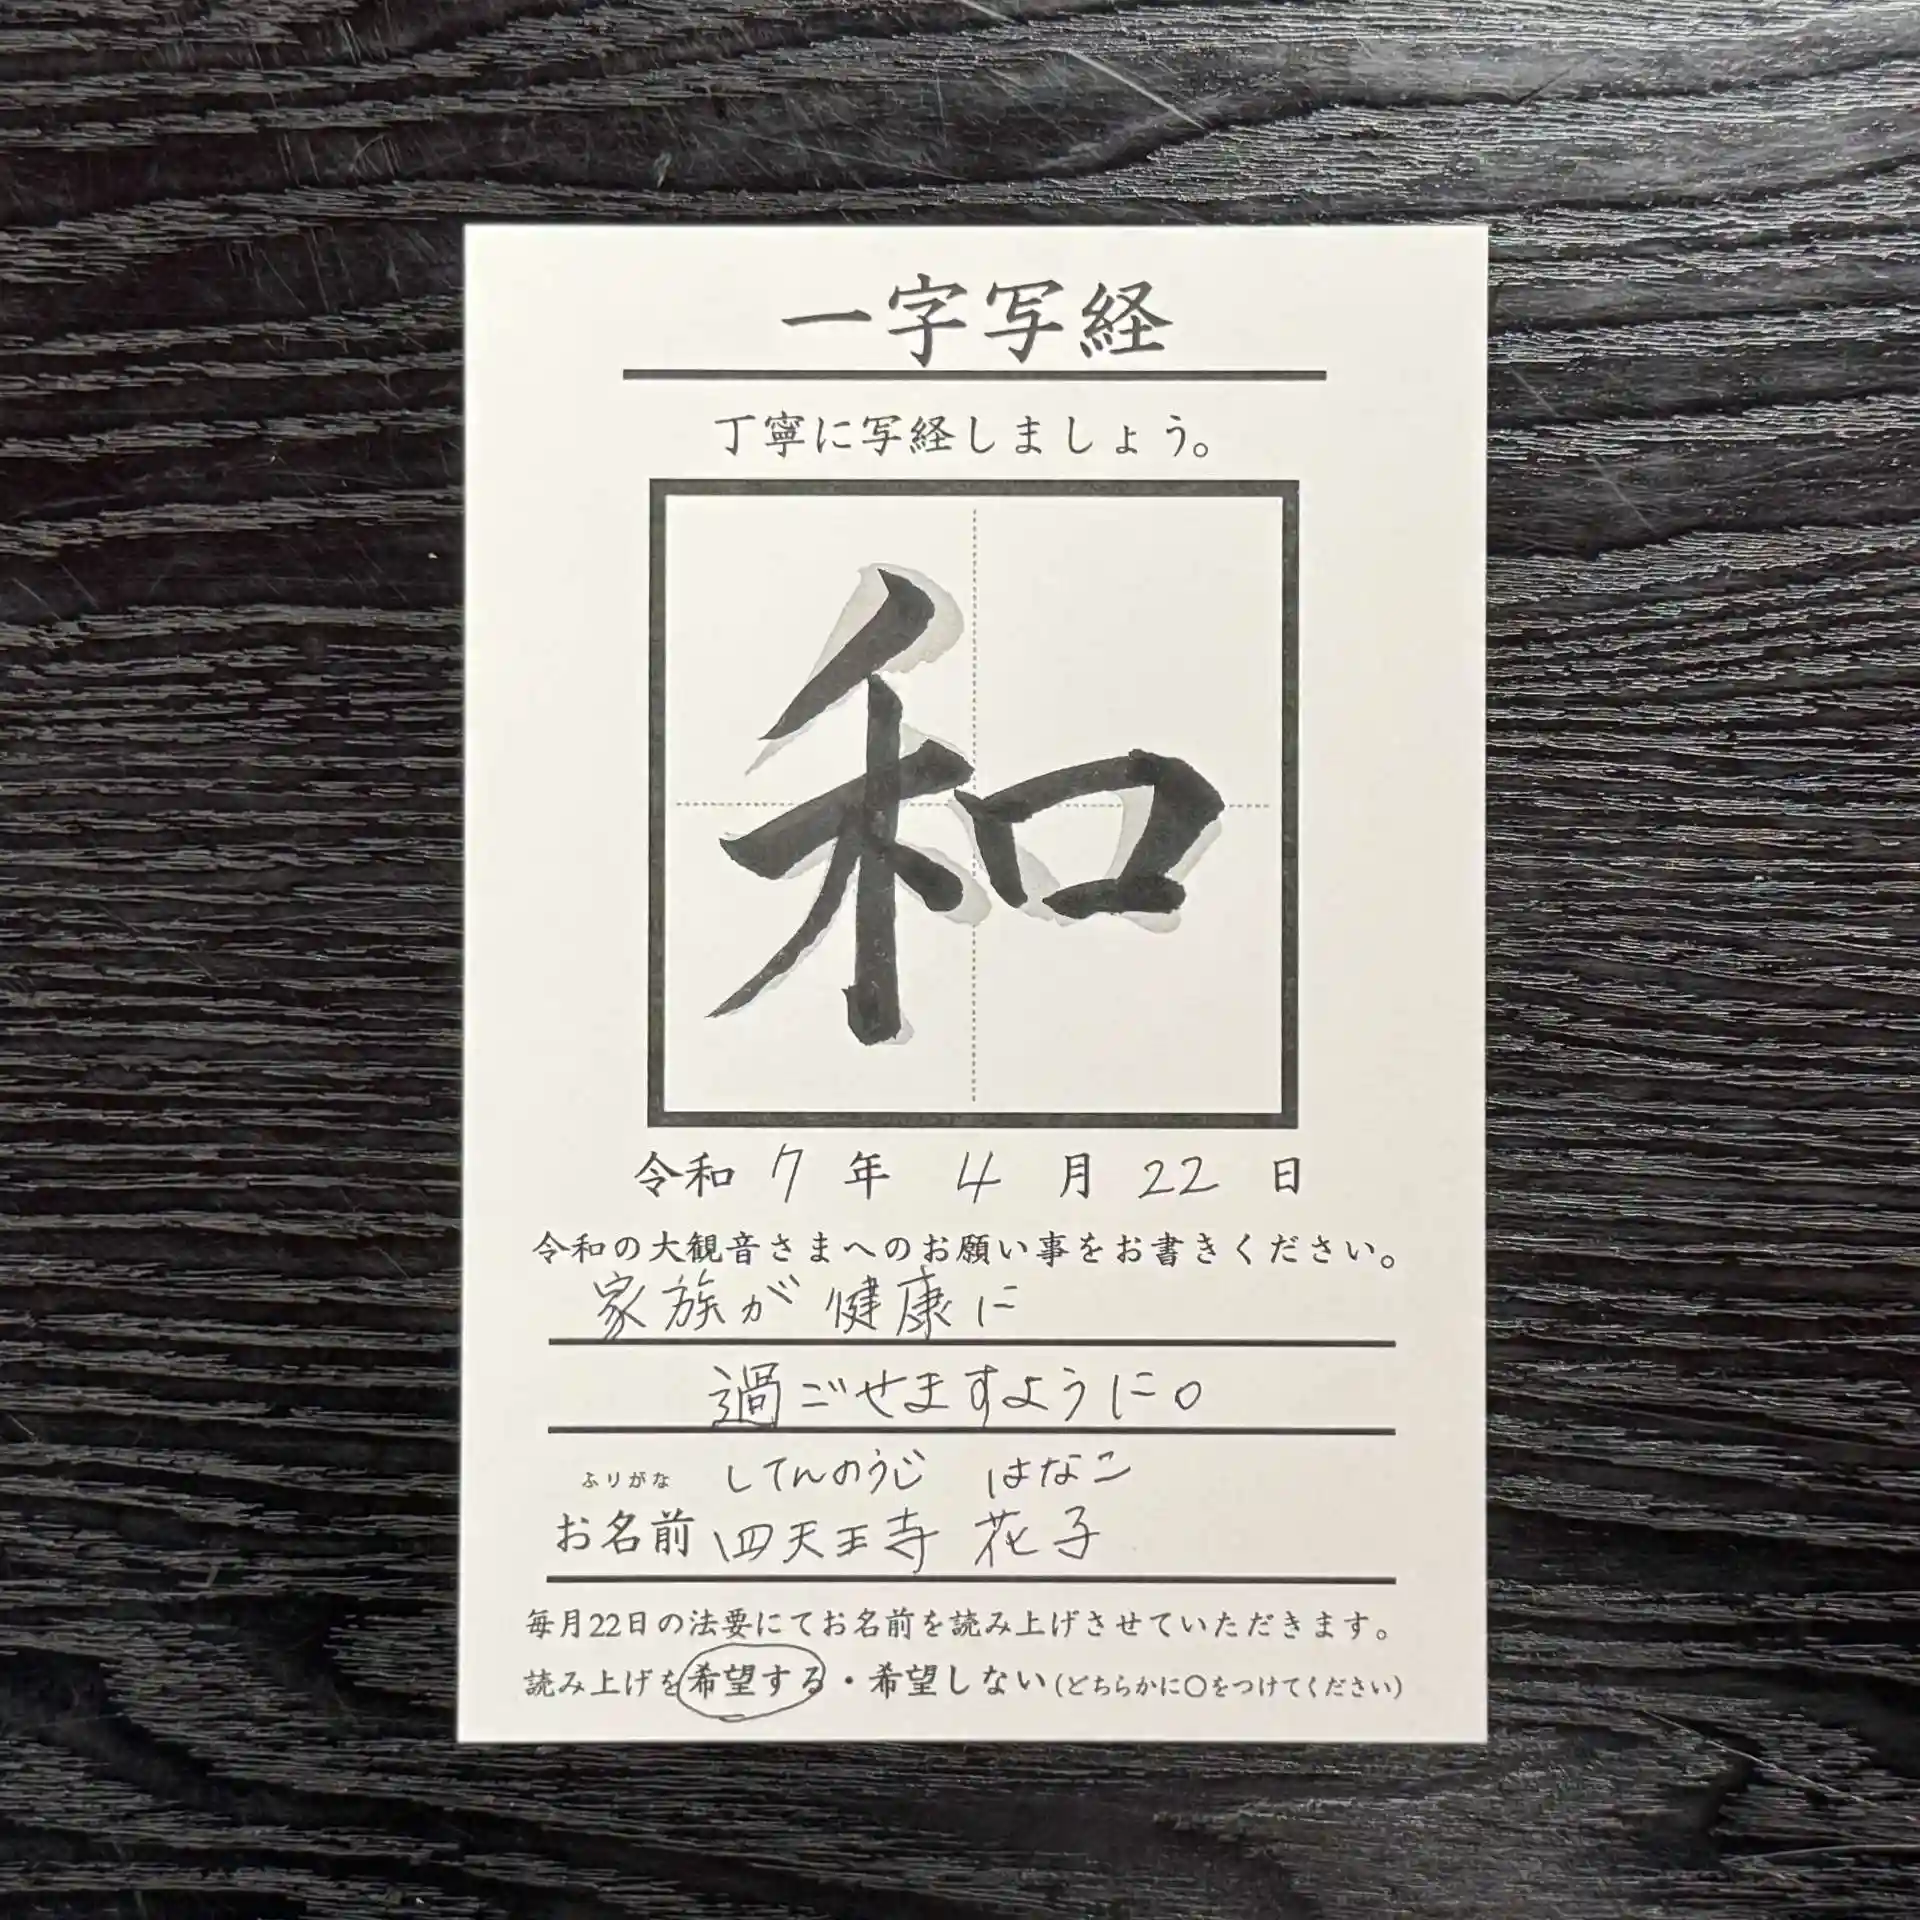 一字写経
丁寧に写経しましょう。
和
令和 7 年 4 月 22 日
令和の大観音さまへのお願い事をお書きください。
家族が健康に
過ごせますように。
ふりがな してんのうじ はなこ
お名前 四天王寺 花子
毎月22日の法要にてお名前を読み上げさせていただきます。
読み上げを希望する・希望しない(どちらかに〇をつけてください)